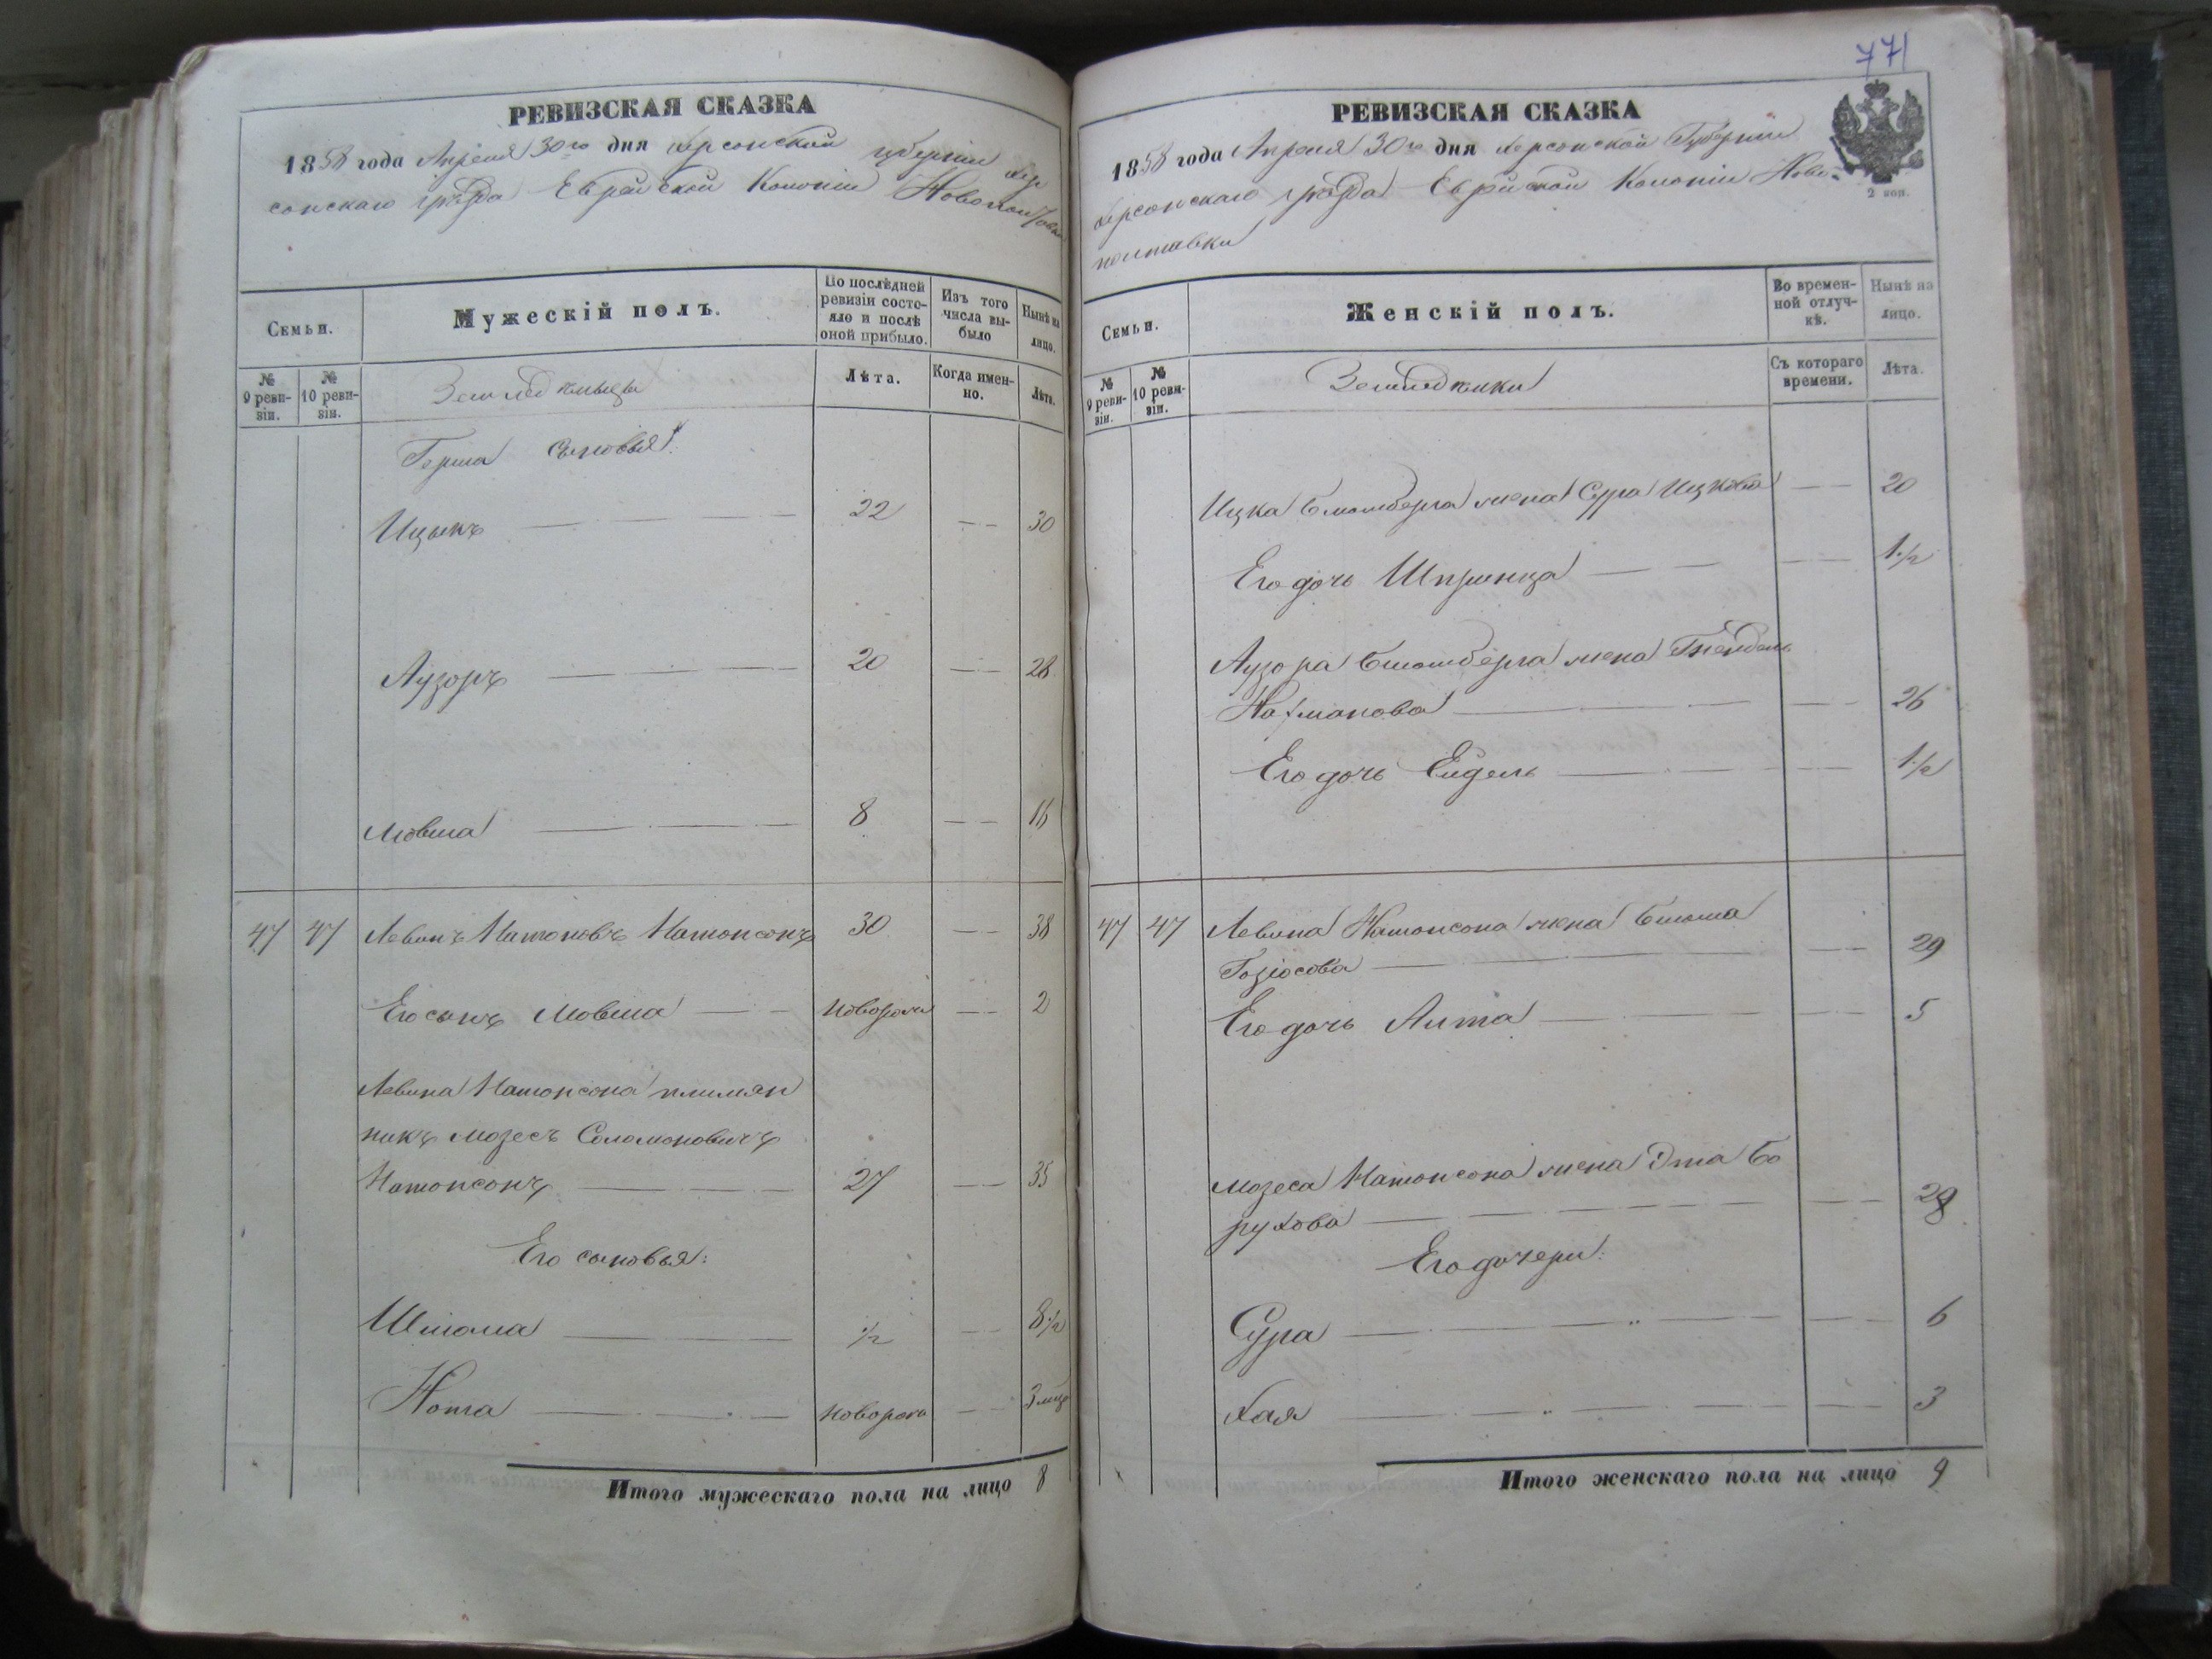 РЕВИЗСКАЯ СКАЗКА
1858 года Апреля 30го дня Херсонской губернии Хер
сонскаго уѣзда Еврейской Колоніи Новополтавки
Семьи.
Мужескій полъ.
По послѣдней ревизіи состояло и послѣ оной прибыло.
Изъ того числа выбыло
Нынѣ на лицо.
№ 9 ревизіи.
№ 10 ревизіи.
Земледѣльцы
Лѣта.
Когда именно.
Лѣта.
Герша сыновья:
Ицыкъ 22 30
Аузоръ 20 28
Мовша 8 16
47 47 Левинъ Натоновъ Натонсонъ 30 38
Его сынъ Мовша новорож 2
Левина Натонсона племян
никъ Мозесъ Соломоновичъ
Натонсонъ 27 35
Его сыновья:
Шлюма 1/2 8 1/2
Нота новорож 3 мцъ
Итого мужескаго пола на лицо 8
771
РЕВИЗСКАЯ СКАЗКА
1858 года Апреля 30го дня Херсонской Губерніи
Херсонскаго уѣзда Еврейской Колоніи Ново-
полтавки
2 коп.
Семьи.
Женскій полъ.
Во временной отлучкѣ.
Нынѣ на лицо.
№ 9 ревизіи.
№ 10 ревизіи.
Земледѣлки
Съ котораго времени.
Лѣта.
Ицка Блюмберга жена Сура Ицкова 20
Его дочь Шпринца 1 1/2
Аузора Блюмберга жена Гнендель
Нахманова 26
Его дочь Ейдель 1 1/2
47 47 Левина Натонсона жена Блюма
29
Его дочь Алта 5
Мозеса Натонсона жена Эта Бо
рухова 29
Его дочери:
Сура 6
Хая 3
Итого женскаго пола на лицо 9